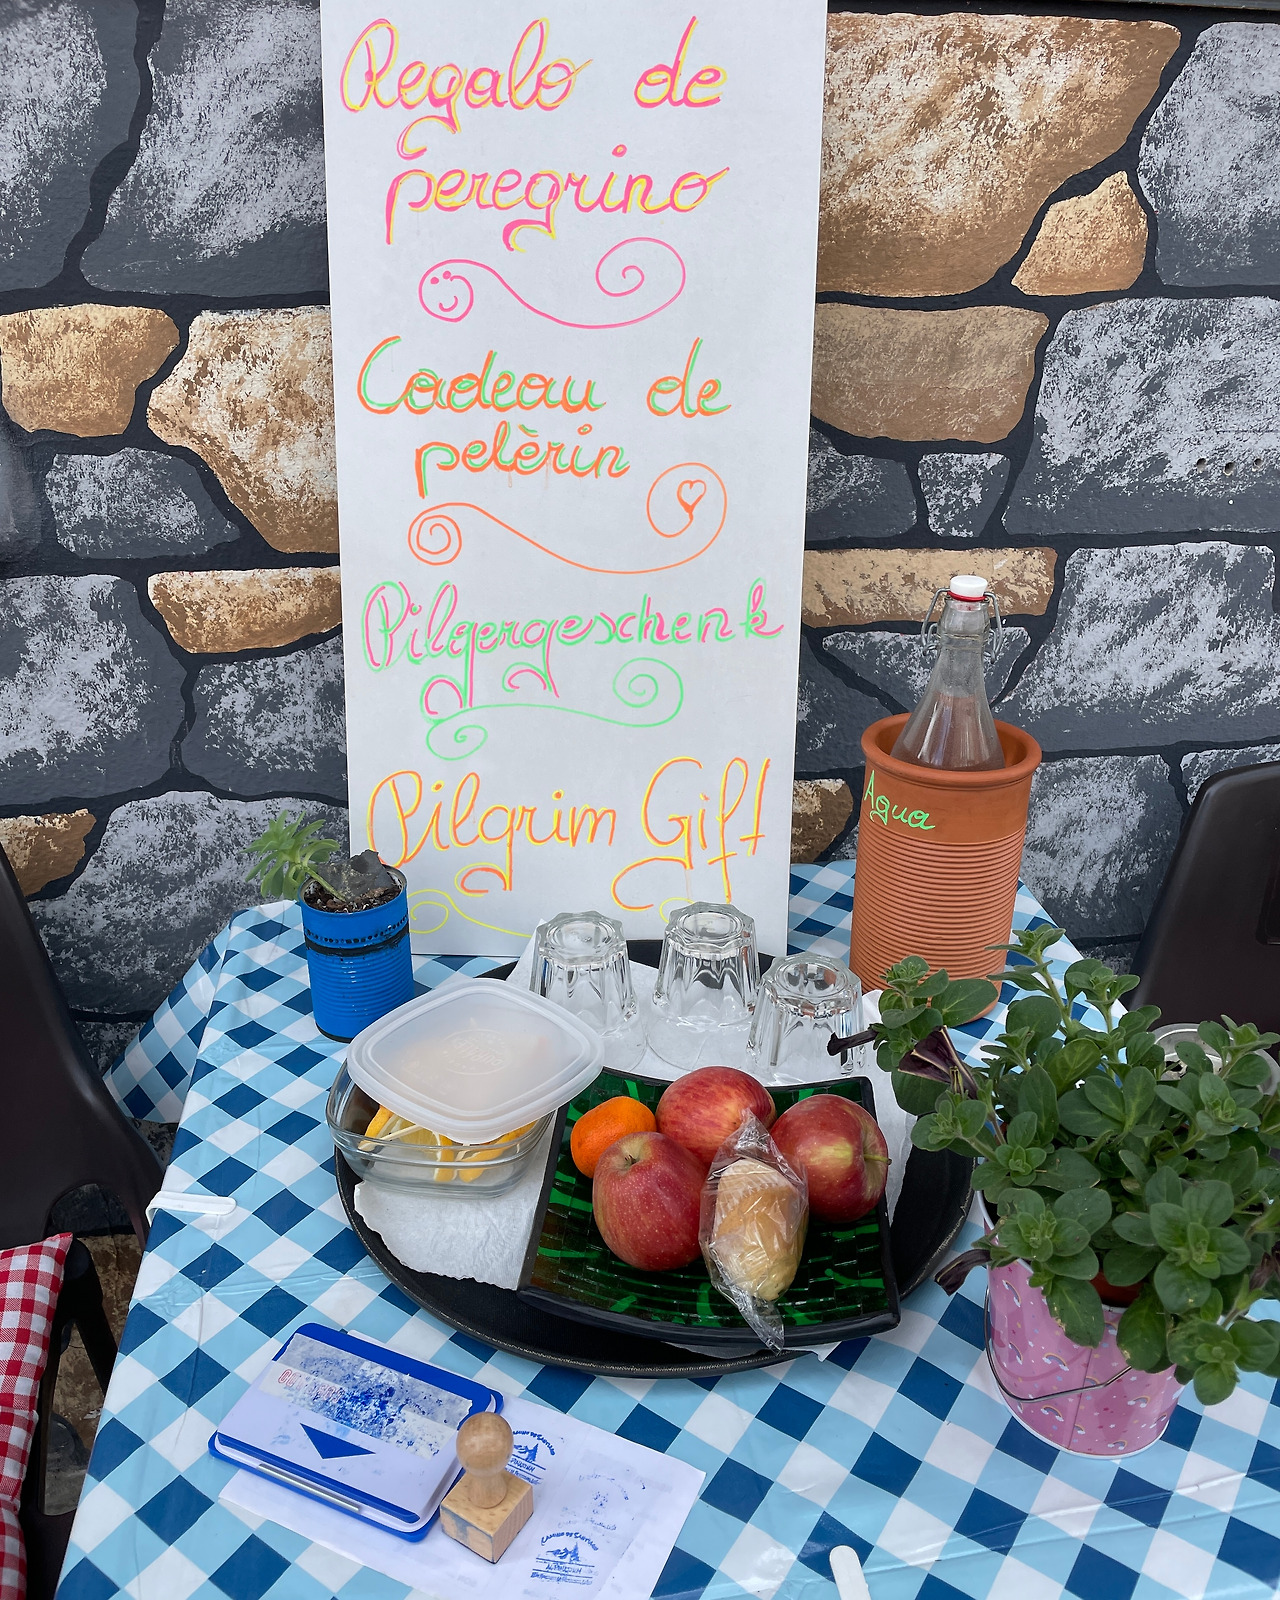 Regalo de
peregrino
Cadeau de
pelèrin
Pilgergeschenk
Pilgrim Gift
Agua
CAMINO DE SANTIAGO